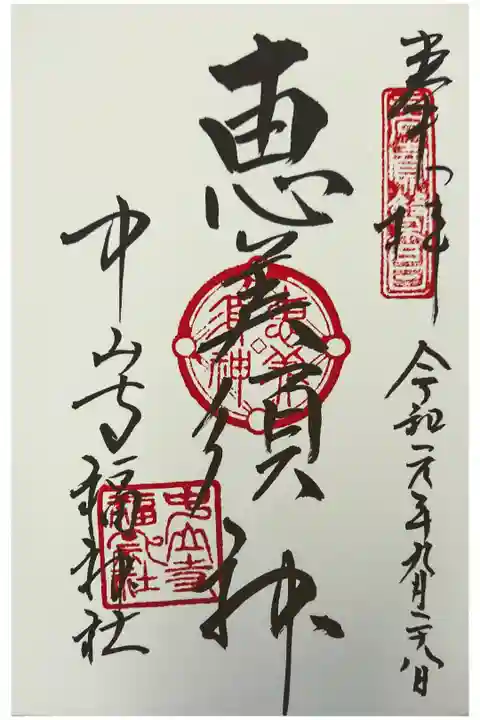 奉拝
令和元年九月二十八日
恵美須神
恵美須神
中山寺福神社
中山寺福神社